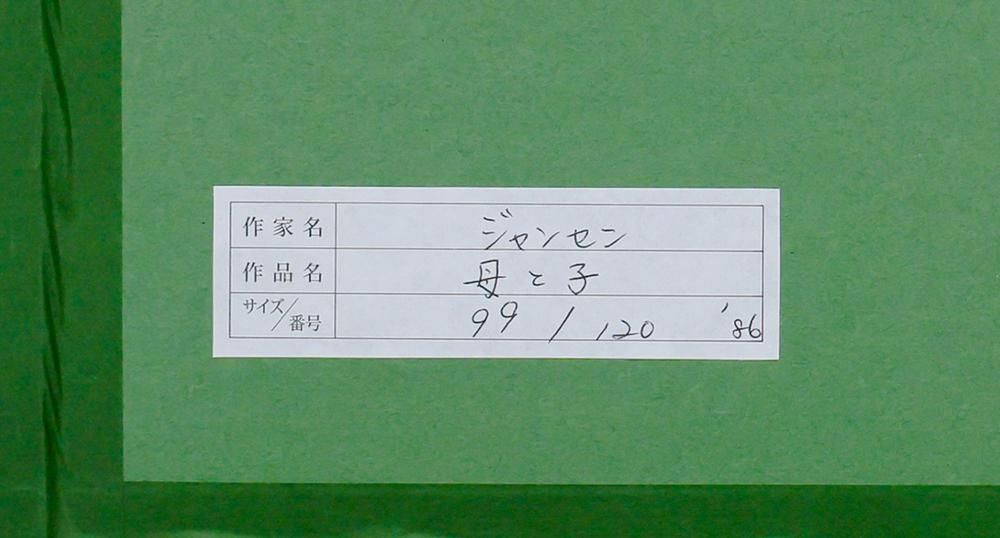 作家名 ジャンセン
作品名 母と子
サイズ/番号 99/120 '86